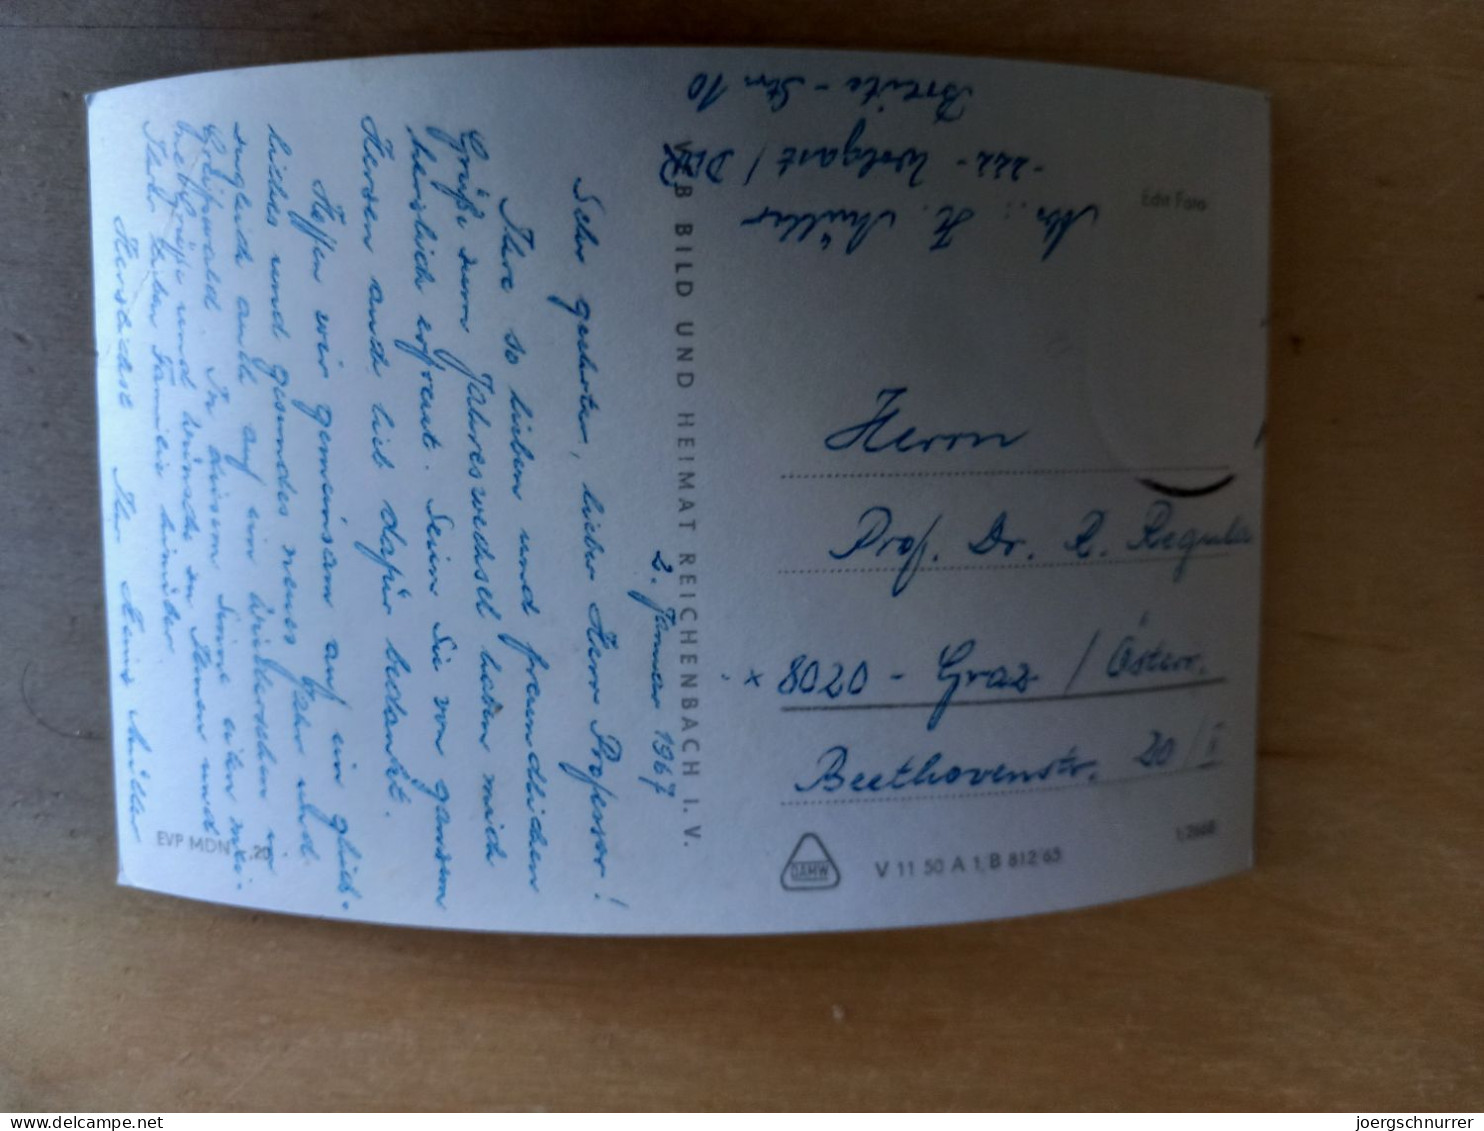 2. Jänner 1967
Sehr geehrter, lieber Herr Professor!
Ihre so lieben und freundlichen
Grüße zum Jahreswechsel haben mich
herzlich erfreut. Seien Sie von ganzem
Herzen und lieb dafür bedankt.
Hoffen wir gemeinsam auf ein glück-
liches und gesundes neues Jahr und
zugleich auch auf ein Wiedersehen in
Greifswald. In diesem Sinne eilen mei-
ne Grüße und Wünsche zu Ihnen und
Ihrer lieben Familie hinüber.
Herzlichst Ihr Heinz Müller
EVP MDN -,20
VEB BILD UND HEIMAT REICHENBACH I. V.
Abs.: H. Müller
-222- Wolgast / DDR
Breite-Str. 10
Edit Foto
Herrn
Prof. Dr. R. Regula
x 8020 - Graz / Österr.
Beethovenstr. 20 / I
DAMW
V 11 50 A 1/B 812/65
1/2668
delcampe.net
joergschnurrer